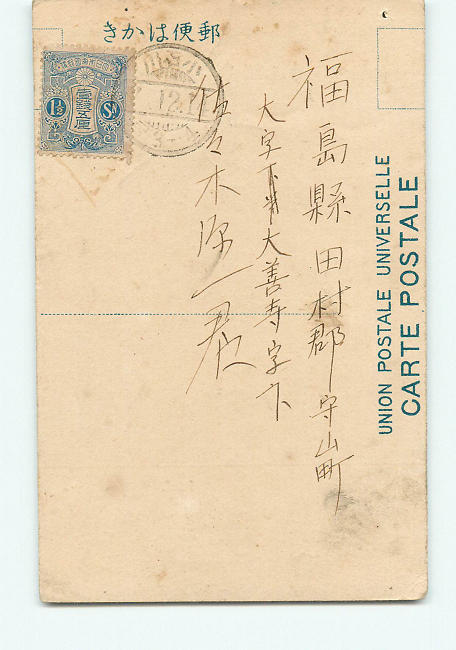 きかはは便郵
福島縣田村郡守山町
大字下大善寺字下
佐々木源一君
UNION POSTALE UNIVERSELLE
CARTE POSTALE
1½ Sn
壹錢五厘